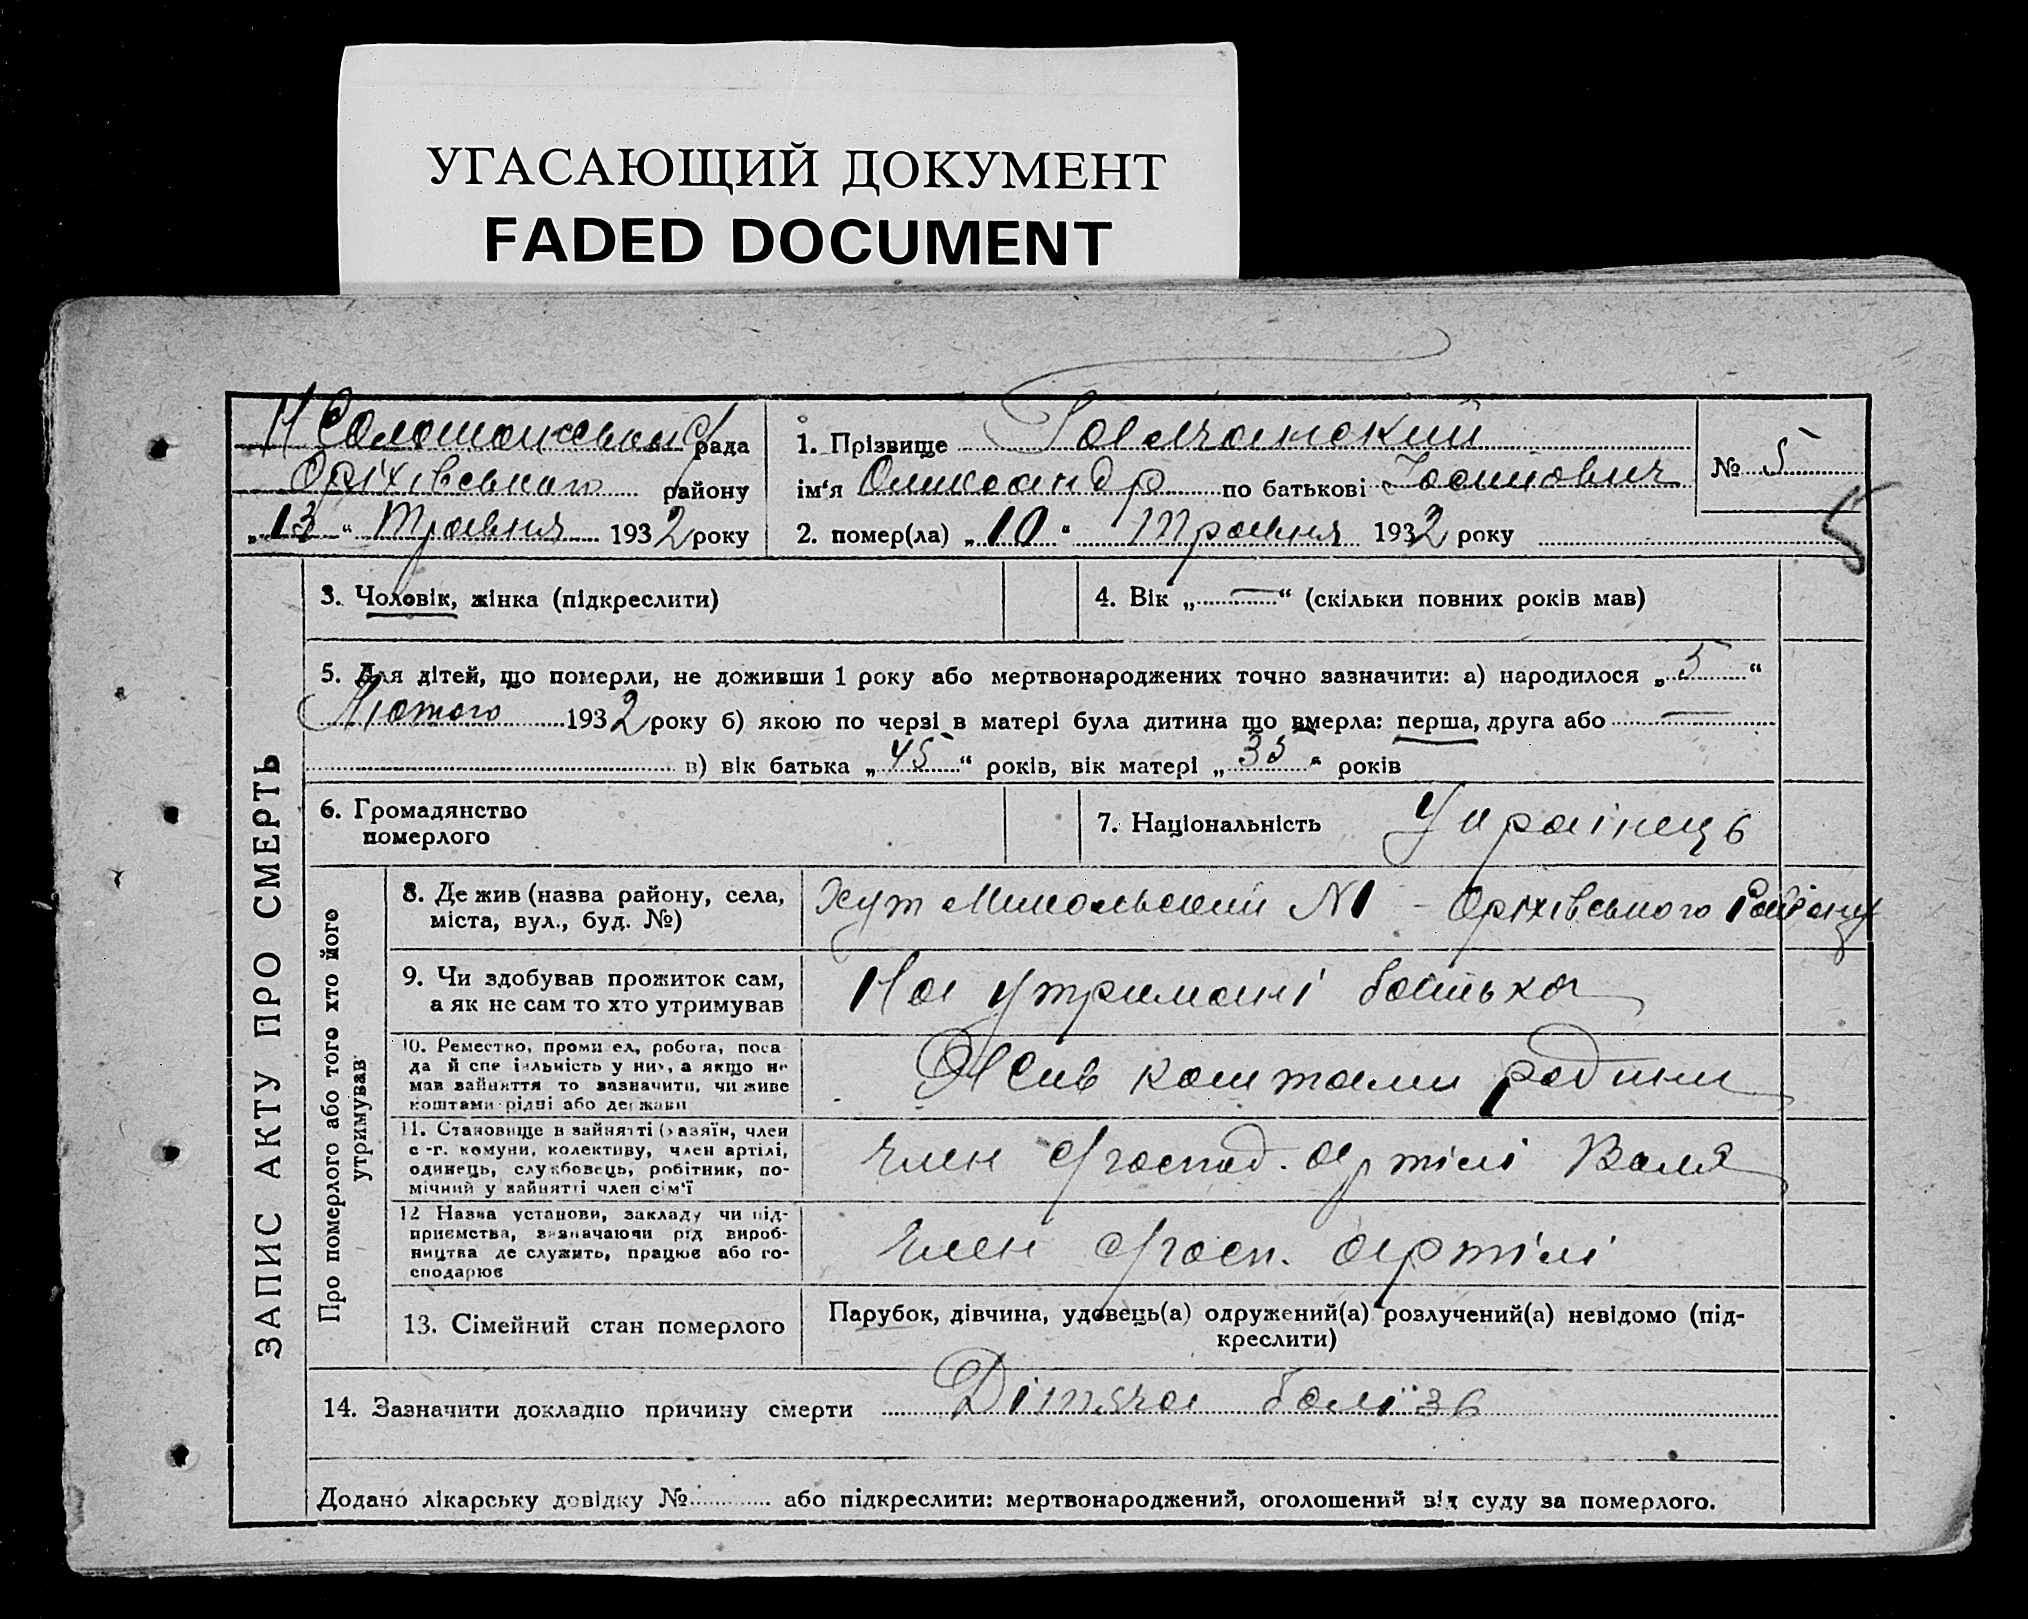 УГАСАЮЩИЙ ДОКУМЕНТ
FADED DOCUMENT
рада
Оріхівського району
„13“ Травня 1932 року
1. Прізвище
ім‘я Олександр по батькові Йосипович
2. помер(ла) „10“ Травня 1932 року
№ 5
5
ЗАПИС АКТУ ПРО СМЕРТЬ
3. Чоловік, жінка (підкреслити)
4. Вік „—“ (скільки повних років мав)
5. Для дітей, що померли, не доживши 1 року або мертвонароджених точно зазначити: а) народилося „5“
Лютого 1932 року б) якою по черзі в матері була дитина що вмерла: перша, друга або —
в) вік батька „45“ років, вік матері „35“ років
6. Громадянство
померлого
7. Національність Українець
Про померлого або того хто його
утримував
8. Де жив (назва району, села,
міста, вул., буд. №)
Хут Микольский N1 - Оріхівського Району
9. Чи здобував прожиток сам,
а як не сам то хто утримував
На утримані батька
10. Ремество, промисел, робота, поса-
да й спеціяльність у них, а якщо не
мав зайняття то зазначити, чи живе
коштами рідні або держави
Жив коштами родини
11. Становище в зайнятті (хазяїн, член
с.-г. комуни, колективу, член артілі,
одинець, службовець, робітник, по-
мічний у зайнятті член сім‘ї
Член с/господ. артілі
12 Назва установи, закладу чи під-
приємства, зазначаючи рід вироб-
ництва де служить, працює або го-
сподарює
Член с/госп. артілі
13. Сімейний стан померлого
Парубок, дівчина, удовець(а) одружений(а) розлучений(а) невідомо (під-
креслити)
14. Зазначити докладно причину смерти Дітяча болїзь
Додано лікарську довідку № або підкреслити: мертвонароджений, оголошений від суду за померлого.